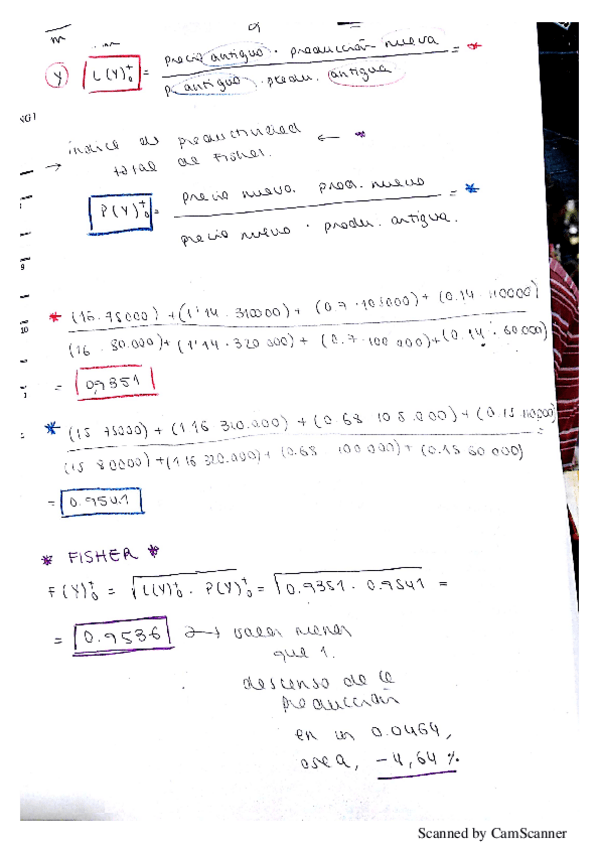 precio antiguo · producción nueva
Y) L(Y)₀ᵗ = ———————— = *
p. antiguo · produ. antigua
índice de productividad ← *
→ total de Fisher.
precio nuevo. prod. nuevo
P(Y)₀ᵗ = ———————— = *
precio nuevo · produ. antigua.
* (16 · 75000) + (1'14 · 310000) + (0.7 · 105000) + (0.14 · 110000)
(16 · 80.000) + (1'14 · 320 000) + (0.7 · 100 000) + (0.14 · 60.000)
= 0,9351
* (15 75000) + (1 16 310.000) + (0.68 105.000) + (0.15 110,000) =
(15 80000) + (1 16 320.000) + (0.68 100 000) + (0.15 60 000)
= 0.9541
* FISHER *
F(Y)₀ᵗ = √L(Y)₀ᵗ · P(Y)₀ᵗ = √0.9351 · 0.9541 =
= 0.9536 → valor menor
que 1.
descenso de la
producción
en un 0.0464,
osea, -4,64 %
Scanned by CamScanner